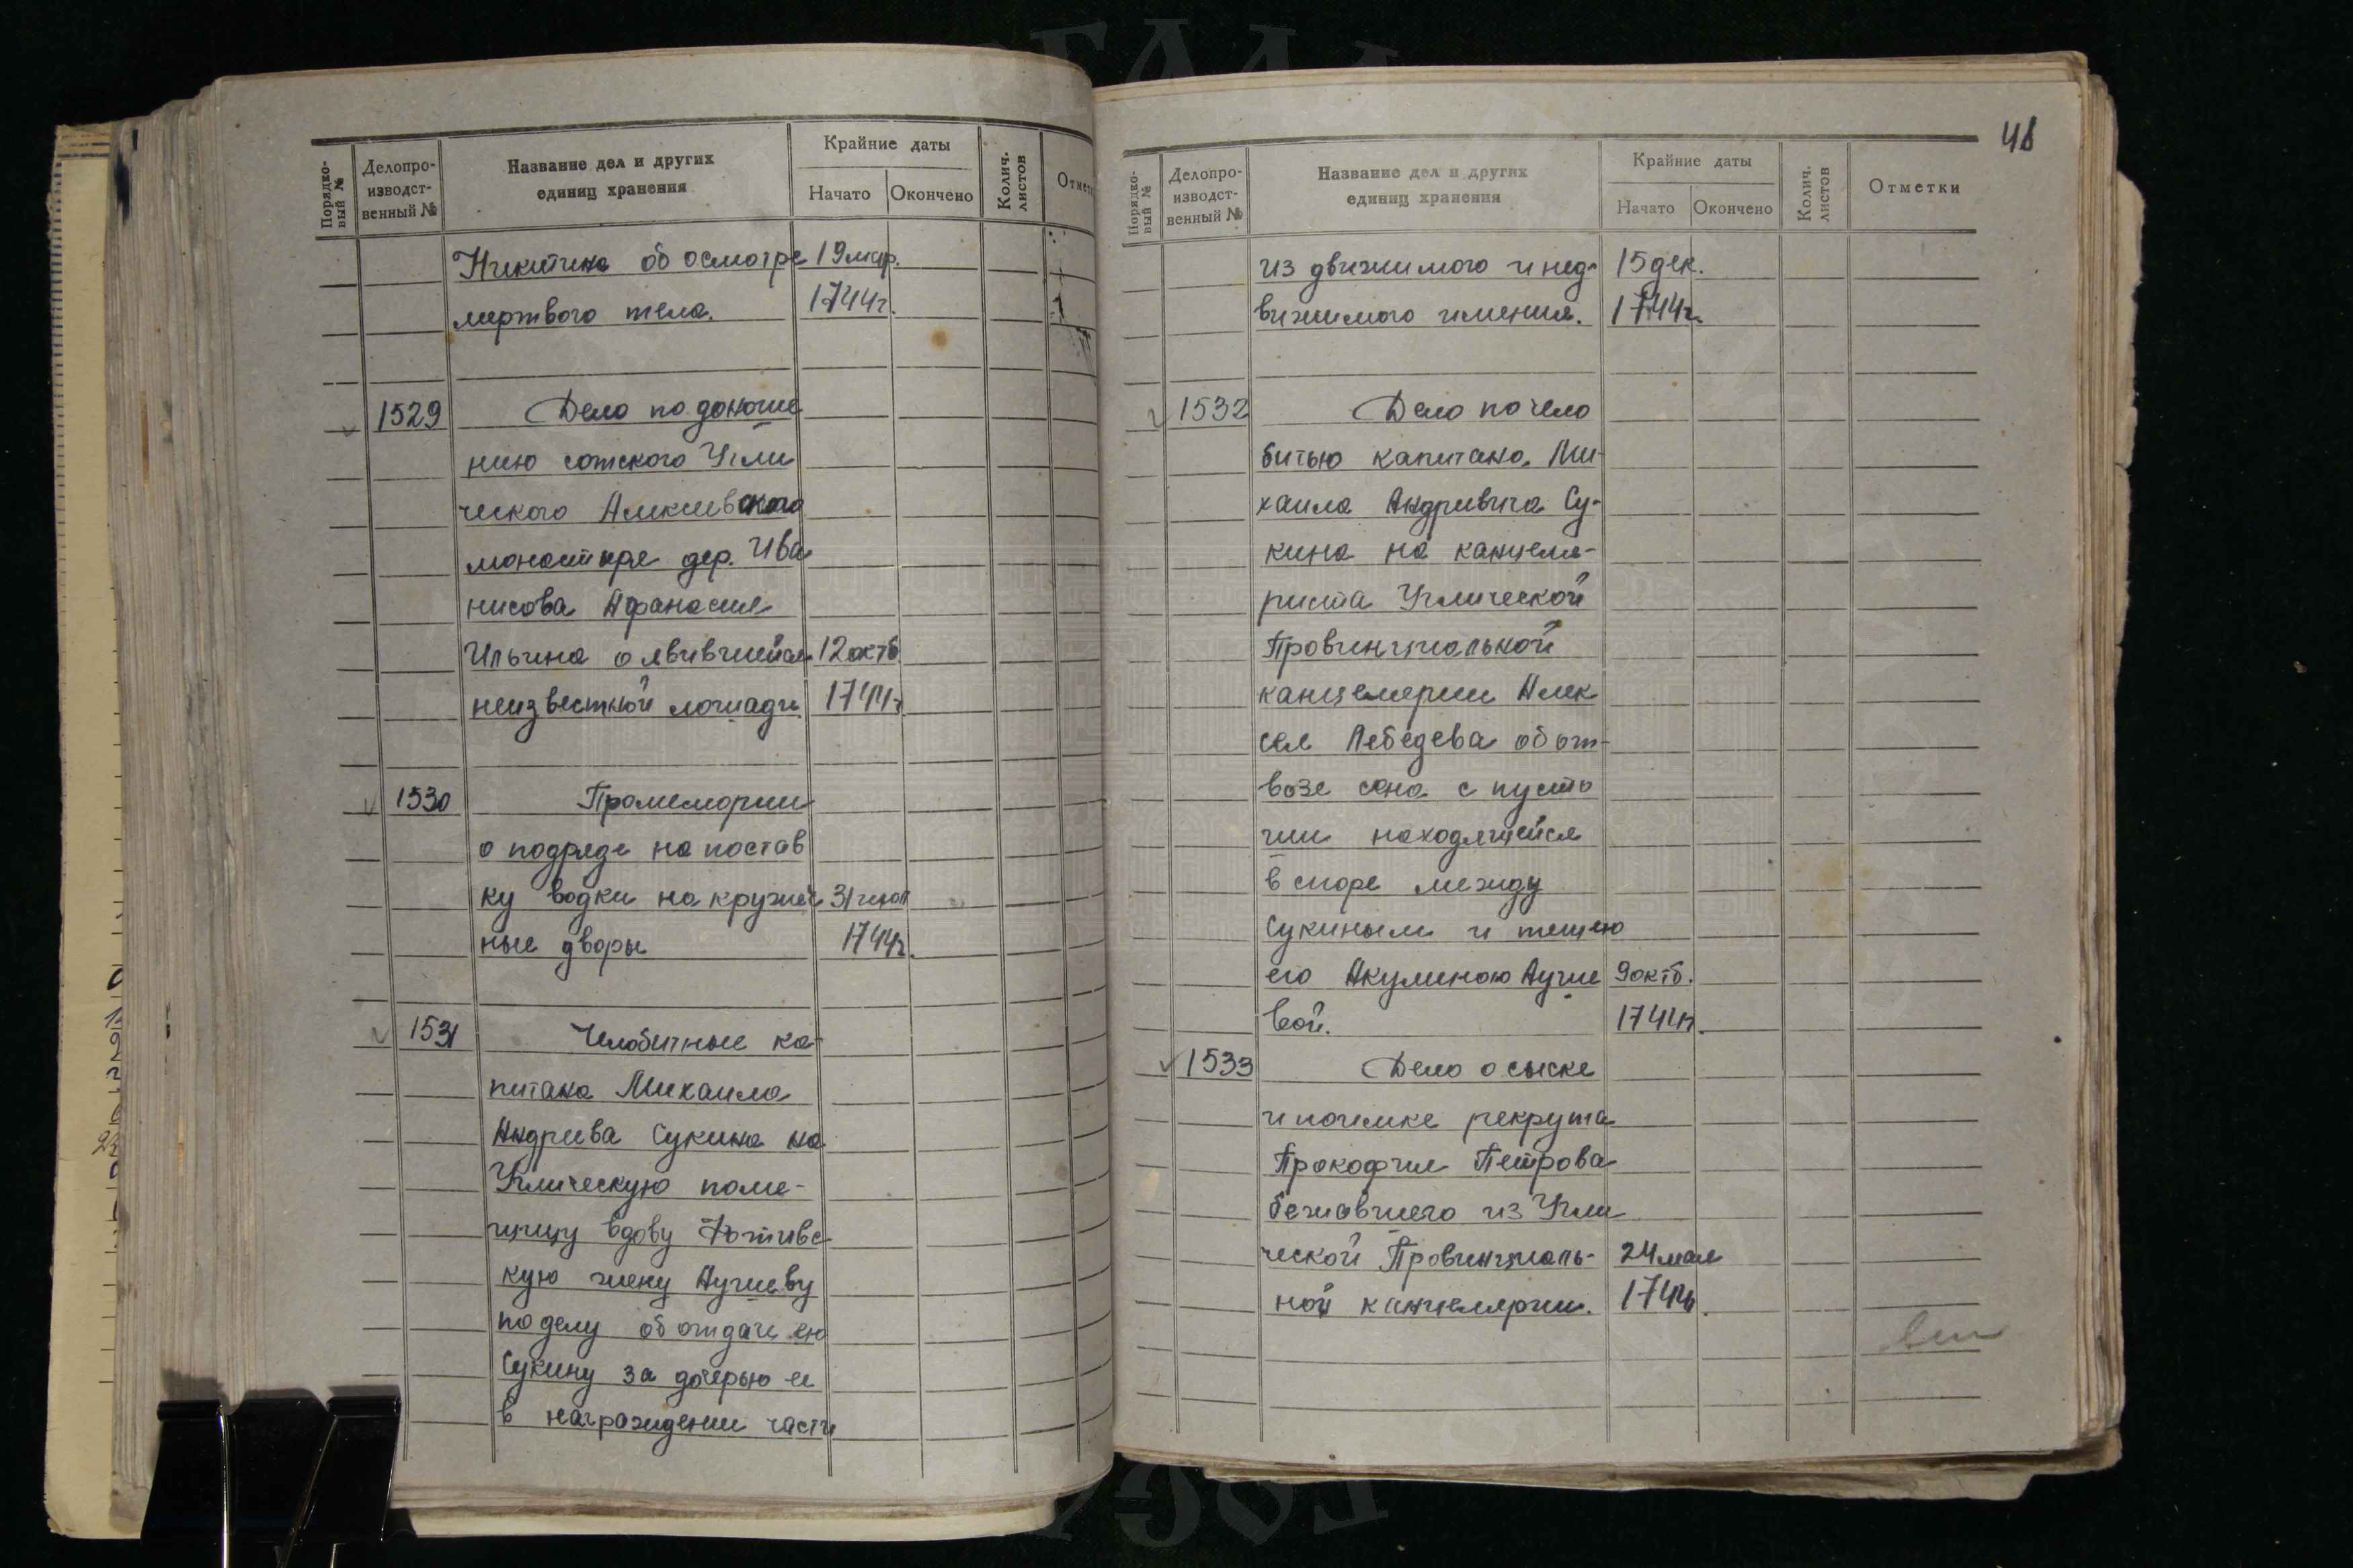 Порядковый №
Делопроизводственный №
Название дел и других единиц хранения
Крайние даты
Начато
Окончено
Колич. листов
Отметк
Никитина об осмотре 19 мар.
мертвого тела. 1744г.
1529 Дело по доноше
нию сотского Угли
ческого Алексеевского
монастыря дер. Ива
нисова Афанасия
Ильина о явившейся 12 октб
неизвестной лошади 1744г
1530 Промемории
о подряде на постав
ку водки на кружеч 31 июл
ные дворы 1744г.
1531 Челобитные ка-
питана Михаила
Андреева Сукина на
Углическую поме-
щицу вдову
кую жену Аучиеву
по делу об отдаче ею
Сукину за дочерью ее
в награждении части
48
Порядковый №
Делопроизводственный №
Название дел и других единиц хранения
Крайние даты
Начато
Окончено
Колич. листов
Отметки
из движимого и нед- 15 дек.
вижимого имения. 1744г.
1532 Дело по чело
битью капитана Ми-
хаила Андреевича Су-
кина на канцеля-
риста Углической
Провинциальной
канцелярии Алек
сея Лебедева об от-
возе сена с пусто
ши находящейся
в споре между
Сукиным и тещею
его Акулиною 9 октб.
вой. 1744г.
1533 Дело о сыске
и поимке рекрута
Прокофия Петрова
бежавшего из Угли
ческой Провинциаль- 24 мая
ной канцелярии. 1744г.